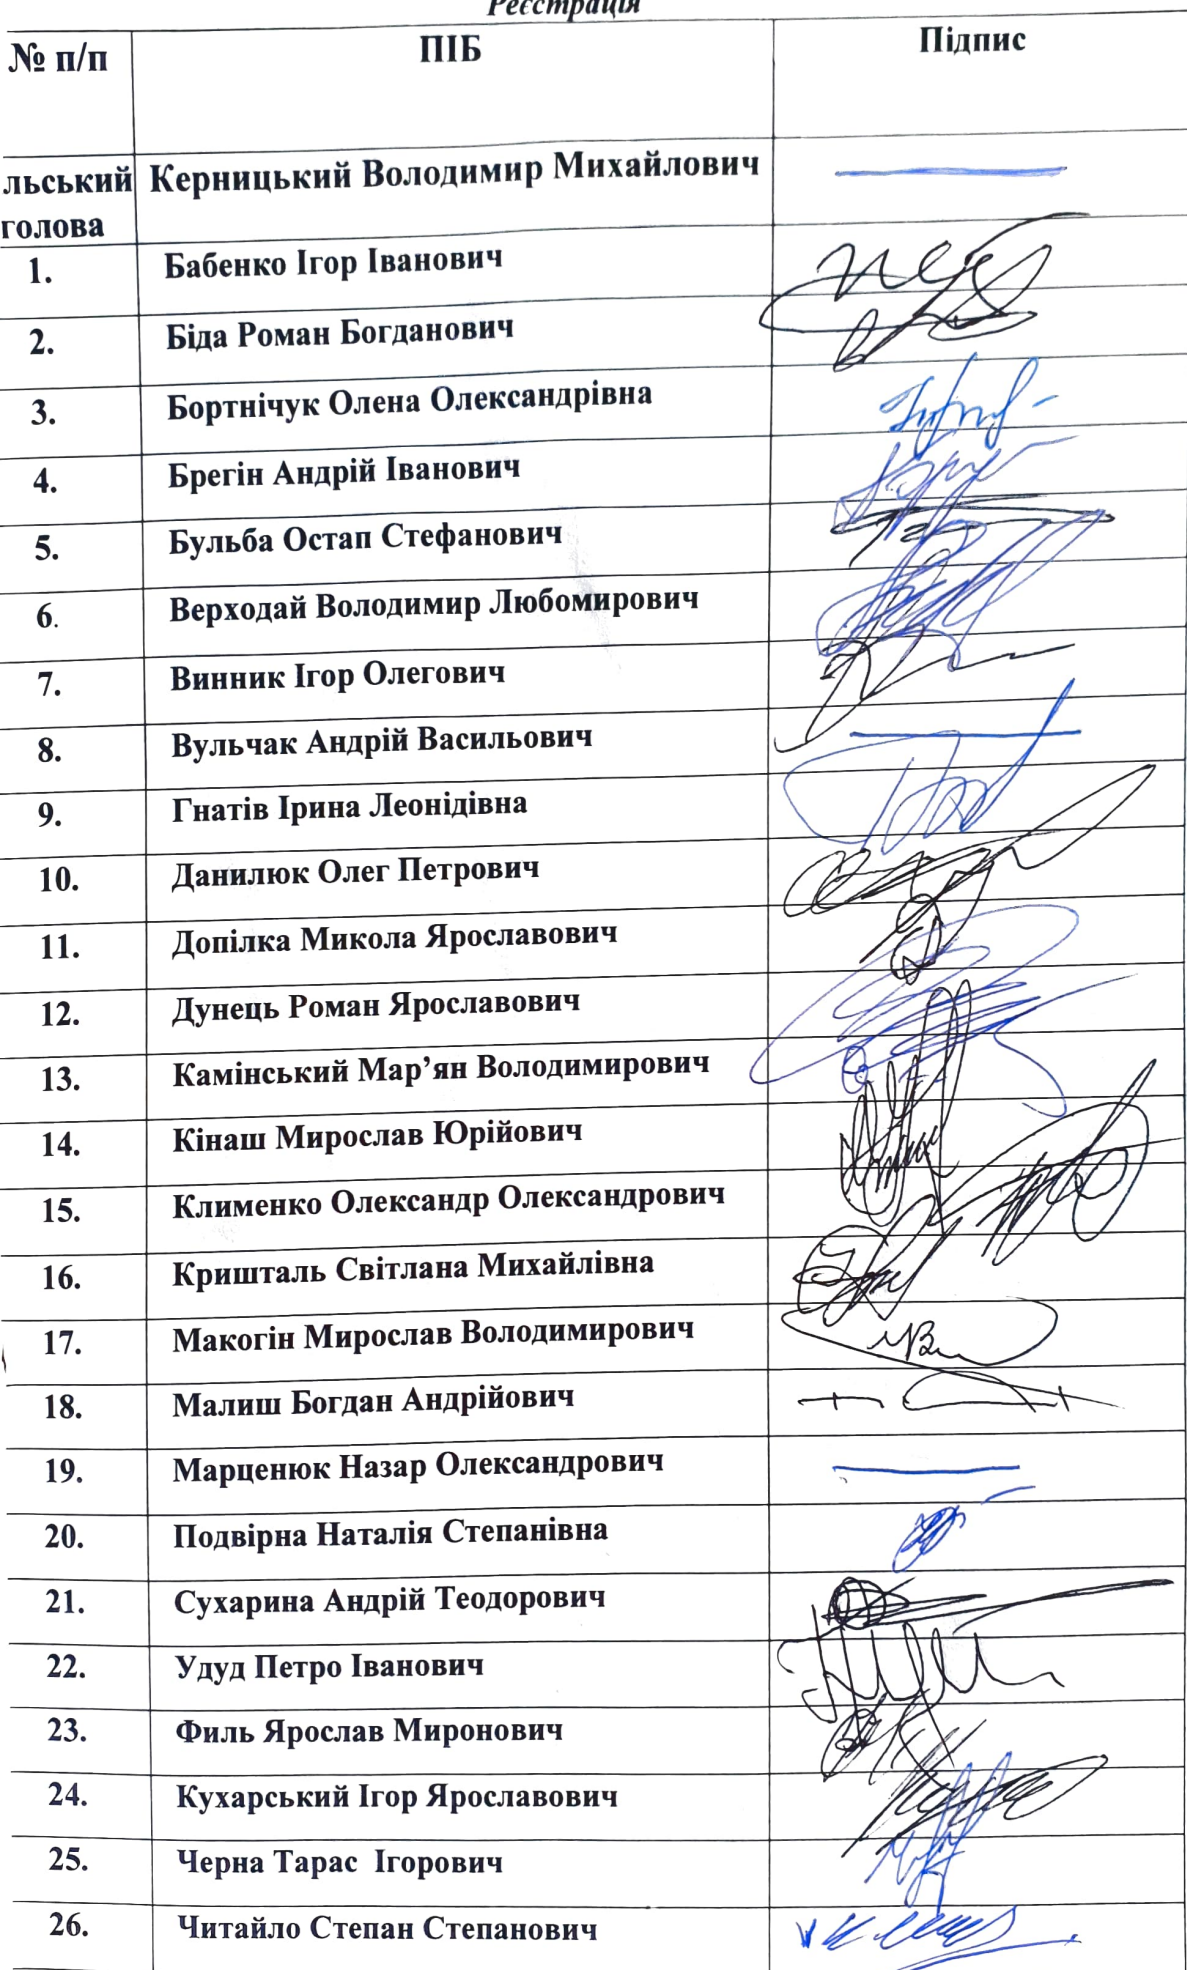 Реєстрація
№ п/п ПІБ Підпис
льський Керницький Володимир Михайлович
голова
1. Бабенко Ігор Іванович
2. Біда Роман Богданович
3. Бортнічук Олена Олександрівна
4. Брегін Андрій Іванович
5. Бульба Остап Стефанович
6. Верходай Володимир Любомирович
7. Винник Ігор Олегович
8. Вульчак Андрій Васильович
9. Гнатів Ірина Леонідівна
10. Данилюк Олег Петрович
11. Допілка Микола Ярославович
12. Дунець Роман Ярославович
13. Камінський Мар’ян Володимирович
14. Кінаш Мирослав Юрійович
15. Клименко Олександр Олександрович
16. Кришталь Світлана Михайлівна
17. Макогін Мирослав Володимирович
18. Малиш Богдан Андрійович
19. Марценюк Назар Олександрович
20. Подвірна Наталія Степанівна
21. Сухарина Андрій Теодорович
22. Удуд Петро Іванович
23. Филь Ярослав Миронович
24. Кухарський Ігор Ярославович
25. Черна Тарас Ігорович
26. Читайло Степан Степанович